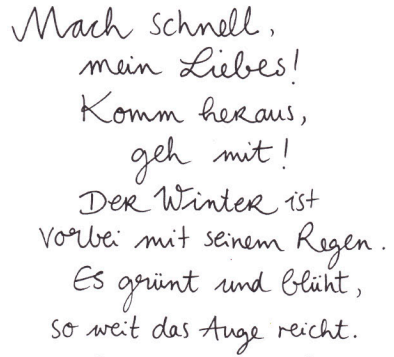 Mach schnell,
mein Liebes!
Komm heraus,
geh mit!
Der Winter ist
vorbei mit seinem Regen.
Es grünt und blüht,
so weit das Auge reicht.